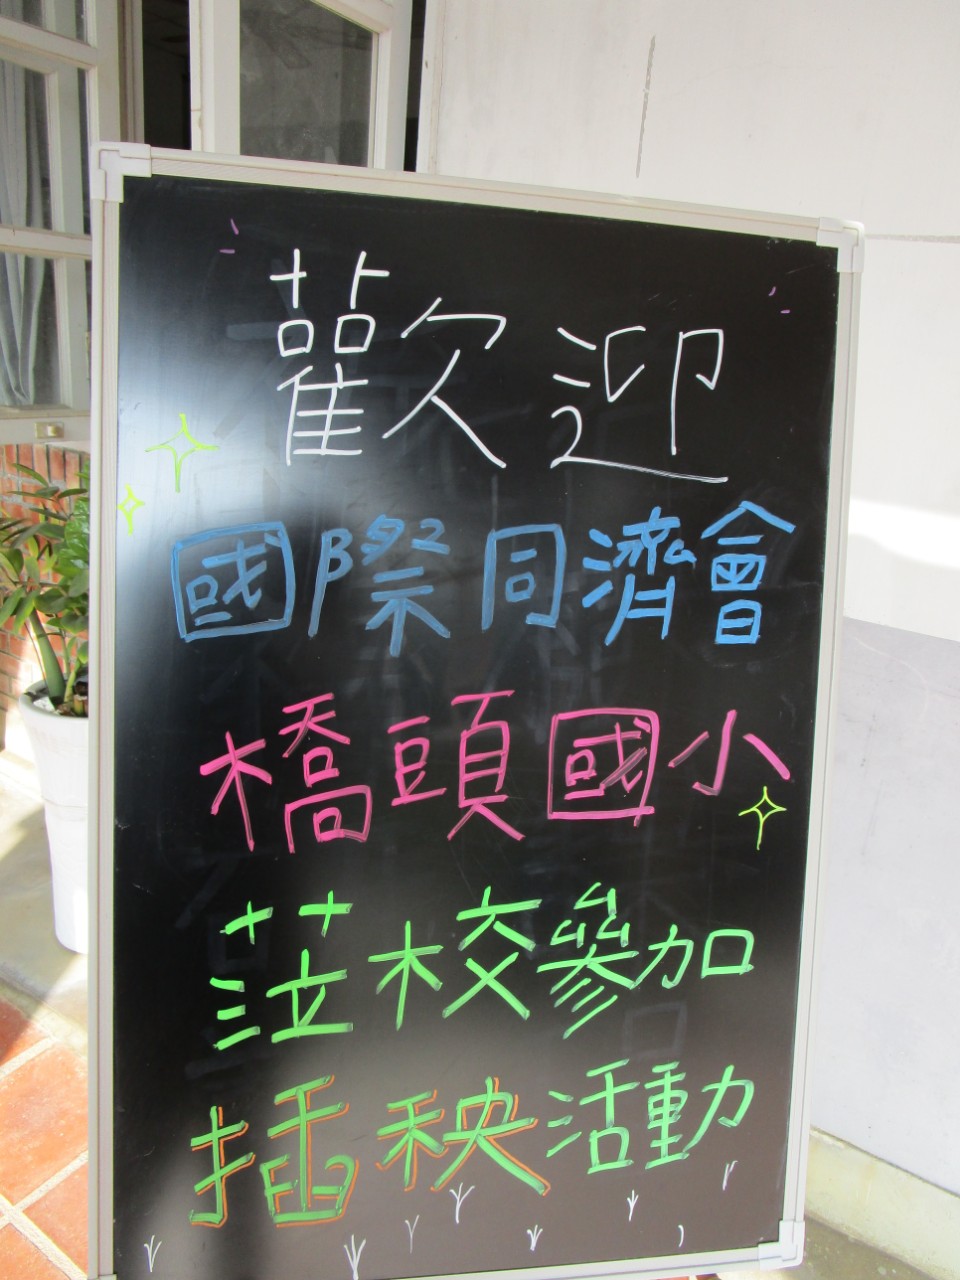 歡迎
國際同濟會
橋頭國小
蒞校參加
插秧活動